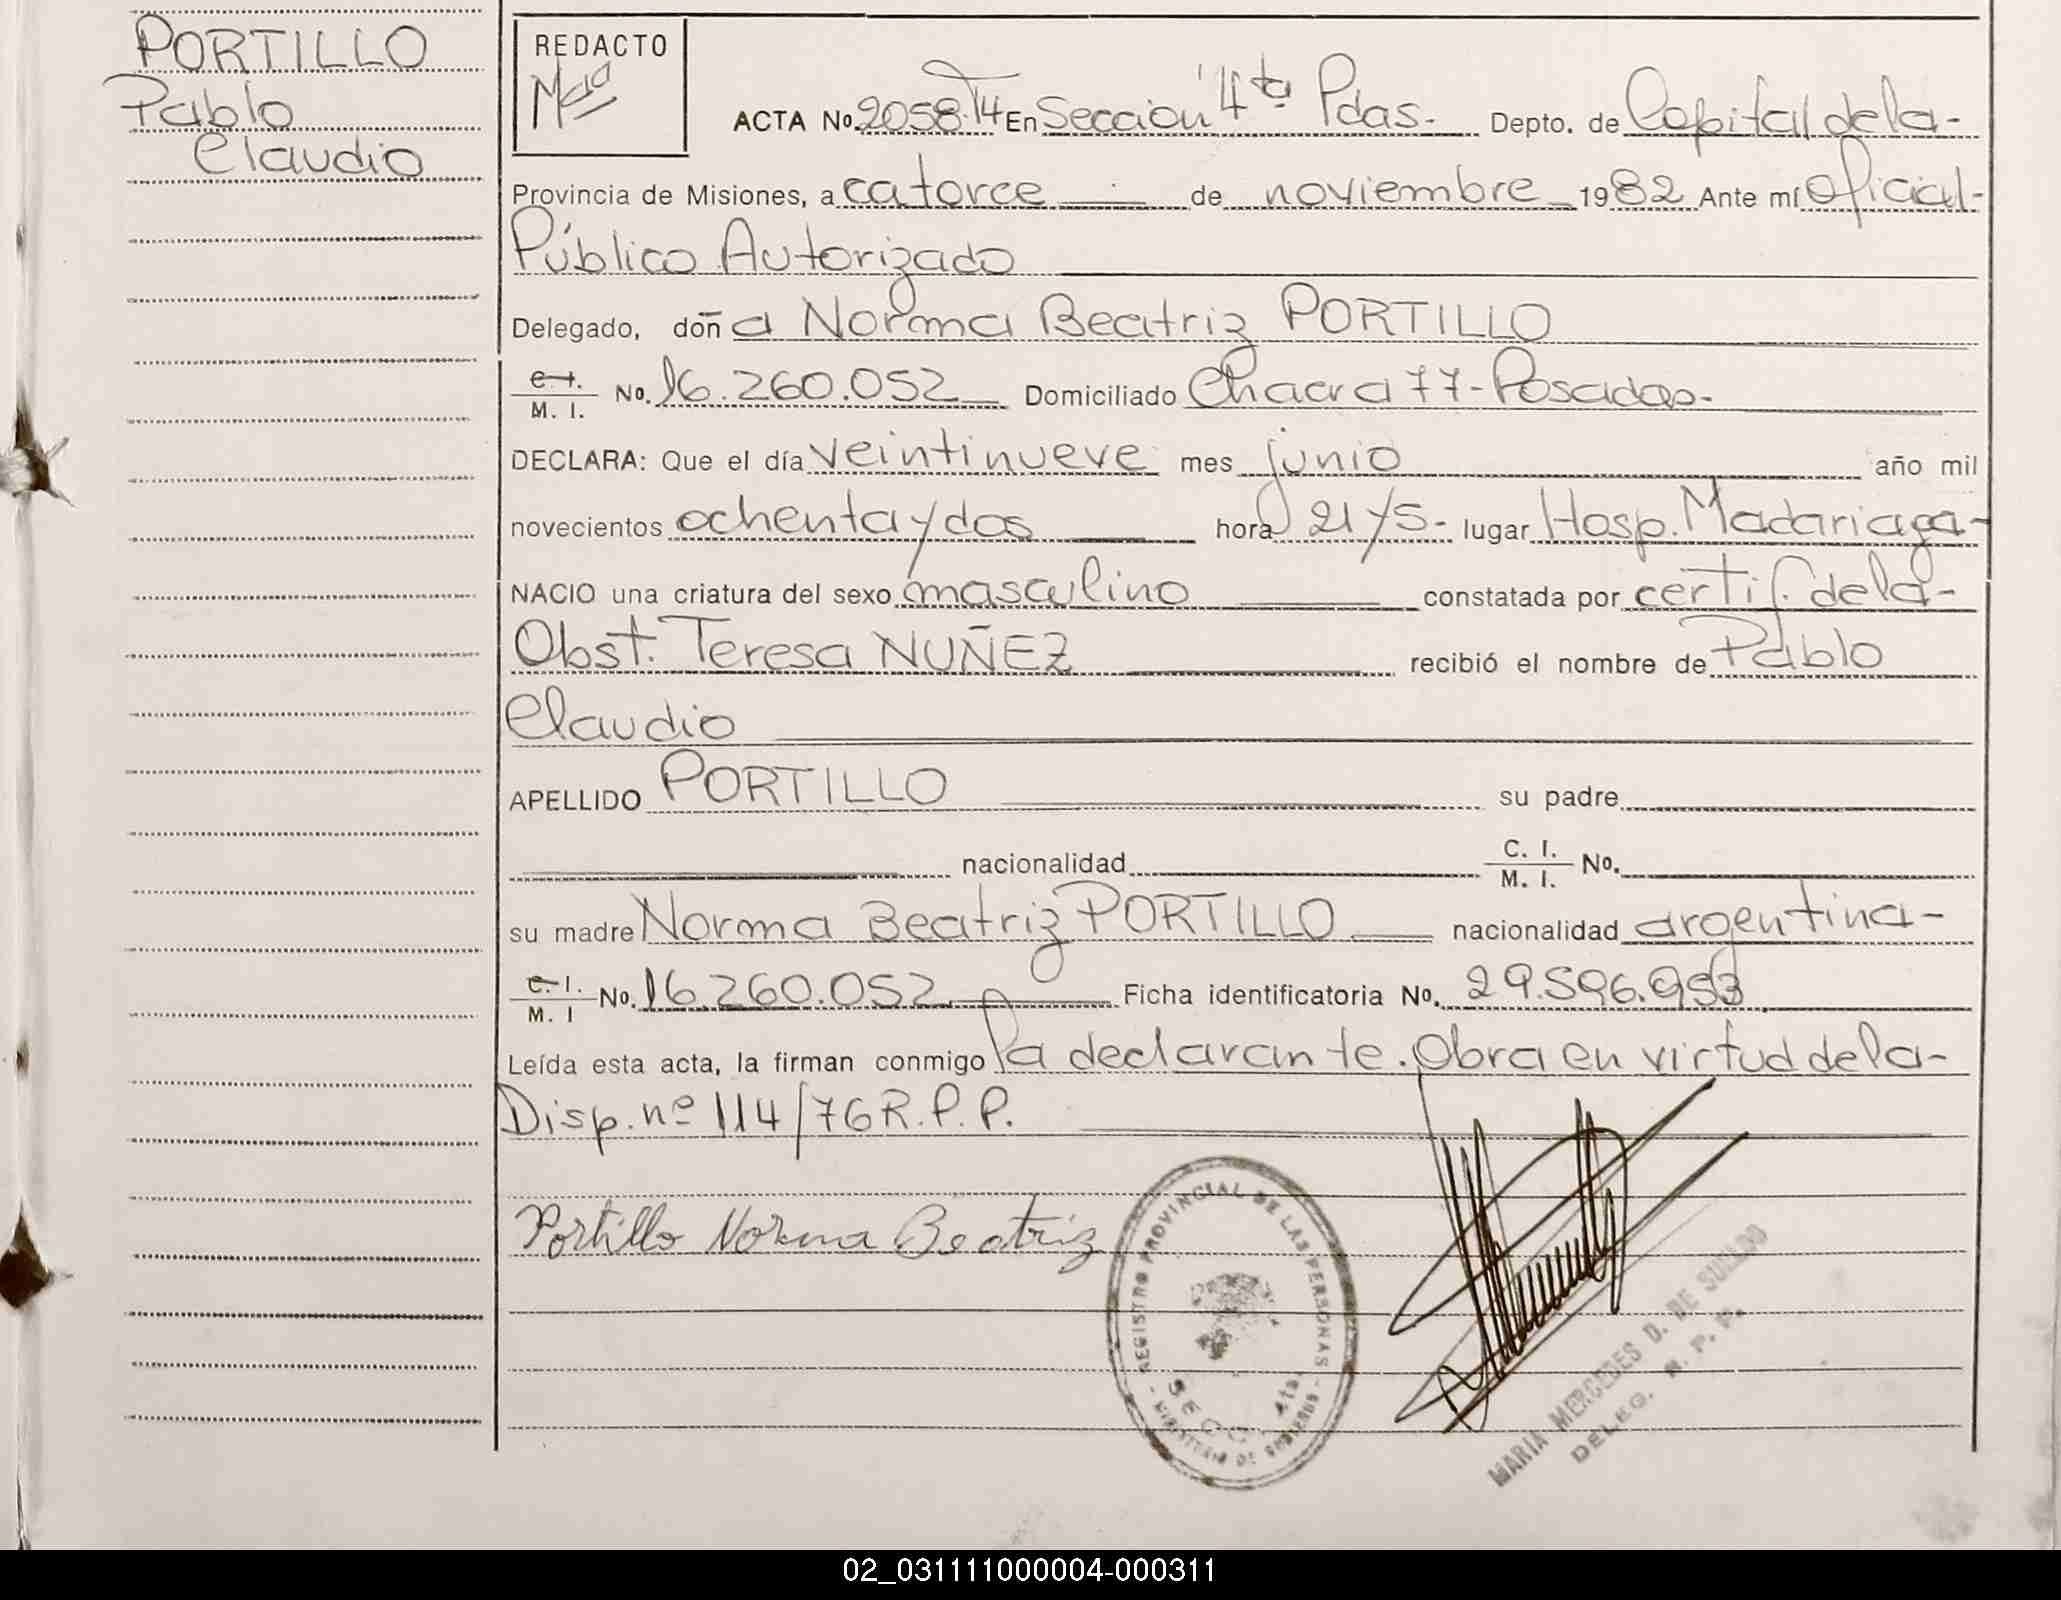 PORTILLO
Pablo
Claudio
REDACTO
ACTA No. 2058 T4 En Sección 4ta Pdas. Depto. de Capital de la-
Provincia de Misiones, a catorce de noviembre 1982 Ante mí Oficial-
Público Autorizado
Delegado, doña Norma Beatriz PORTILLO
C. I.
M. I. No. 16.260.052 Domiciliado Chacra 77-Posadas-
DECLARA: Que el día veintinueve mes junio año mil
novecientos ochenta y dos hora 21 y 5- lugar Hosp. Madariaga-
NACIO una criatura del sexo masculino constatada por certif. de la-
Obst. Teresa NUÑEZ recibió el nombre de Pablo
Claudio
APELLIDO PORTILLO su padre
nacionalidad C. I. M. I. No.
su madre Norma Beatriz PORTILLO nacionalidad argentina-
C. I.
M. I No. 16.260.052 Ficha identificatoria No. 29.596.953
Leída esta acta, la firman conmigo la declarante. Obra en virtud de la-
Disp. nº 114/76 R.P.P.
Portillo Norma Beatriz
REGISTRO PROVINCIAL DE LAS PERSONAS
SECC. 4ta.
MARIA MERCEDES D. DE
DELEG. R. P. P.
02_031111000004-000311